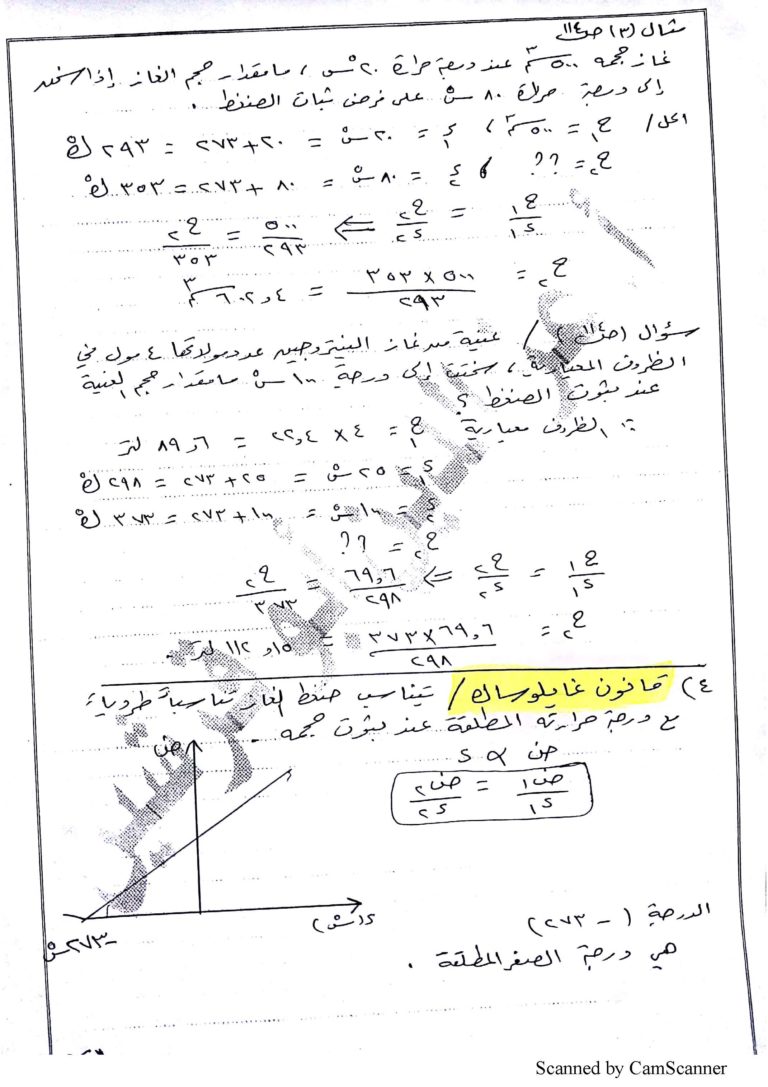 مثال (٣) ص١١٤
غاز حجمه ٥٠٠ سم٣ عند درجة حرارة ٢٠ °س ، ما مقدار حجم الغاز إذا سخن
إلى درجة حرارة ٨٠ °س على فرض ثبات الضغط .
الحل / ح١ = ٥٠٠ سم٣ ، د١ = ٢٠ °س = ٢٠+٢٧٣ = ٢٩٣ °ك
ح٢ = ؟؟ ، د٢ = ٨٠ °س = ٨٠ + ٢٧٣ = ٣٥٣ °ك
ح١/د١ = ح٢/د٢ ⇐ ٥٠٠/٢٩٣ = ح٢/٣٥٣
ح٢ = ٥٠٠ × ٣٥٣ / ٢٩٣ = ٦٠٢,٤ سم٣
سؤال (ص١١٤) / عينة من غاز النيتروجين عدد مولاتها ٤ مول في
الظروف المعيارية ، سخنت إلى درجة ١٠٠ °س ما مقدار حجم العينة
عند ثبوت الضغط ؟
∵ الظروف معيارية ح١ = ٤ × ٢٢,٤ = ٨٩,٦ لتر
د١ = ٢٥ °س = ٢٥+٢٧٣ = ٢٩٨ °ك
د٢ = ١٠٠ °س = ١٠٠+٢٧٣ = ٣٧٣ °ك
ح٢ = ؟؟
ح١/د١ = ح٢/د٢ ⇐ ٦٩,٦/٢٩٨ = ح٢/٣٧٣
ح٢ = ٦٩,٦×٣٧٣ / ٢٩٨ = ١١٢,١٥ لتر.
٤) قانون غايلوساك / يتناسب ضغط الغاز تناسباً طردياً
مع درجة حرارته المطلقة عند ثبوت حجمه .
ض ∝ د
ض١/د١ = ض٢/د٢
ض
د(°س)
-٢٧٣ °س
الدرجة (-٢٧٣)
هي درجة الصفر المطلقة .
Scanned by CamScanner